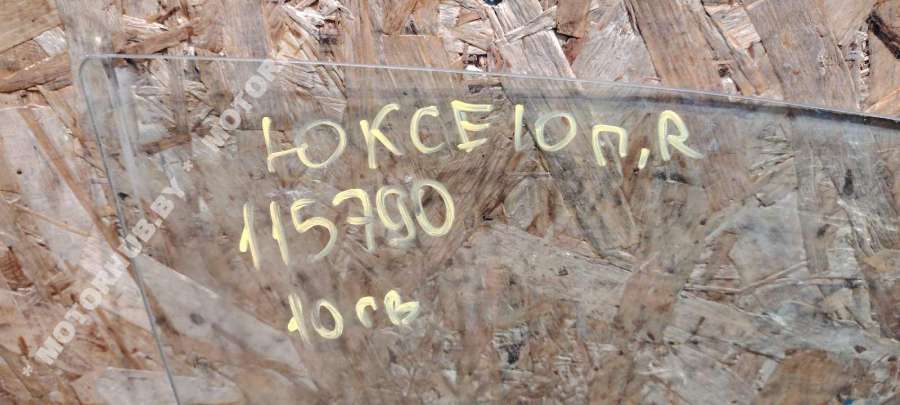 ЮКСЕ10 П, R
115790
10 св
* MOTORHUB.BY * MOTOR